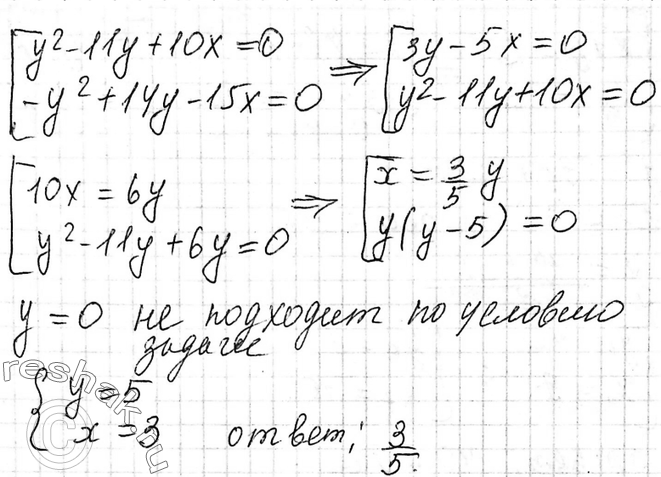 [y²-11y+10x=0 ⇒ [3y-5x=0
[-y²+14y-15x=0 [y²-11y+10x=0
[10x=6y ⇒ [x=3/5 y
[y²-11y+6y=0 [y(y-5)=0
y=0 не подходит по условию
задачи
{y=5
{x=3 ответ: 3/5.
reshak.ru